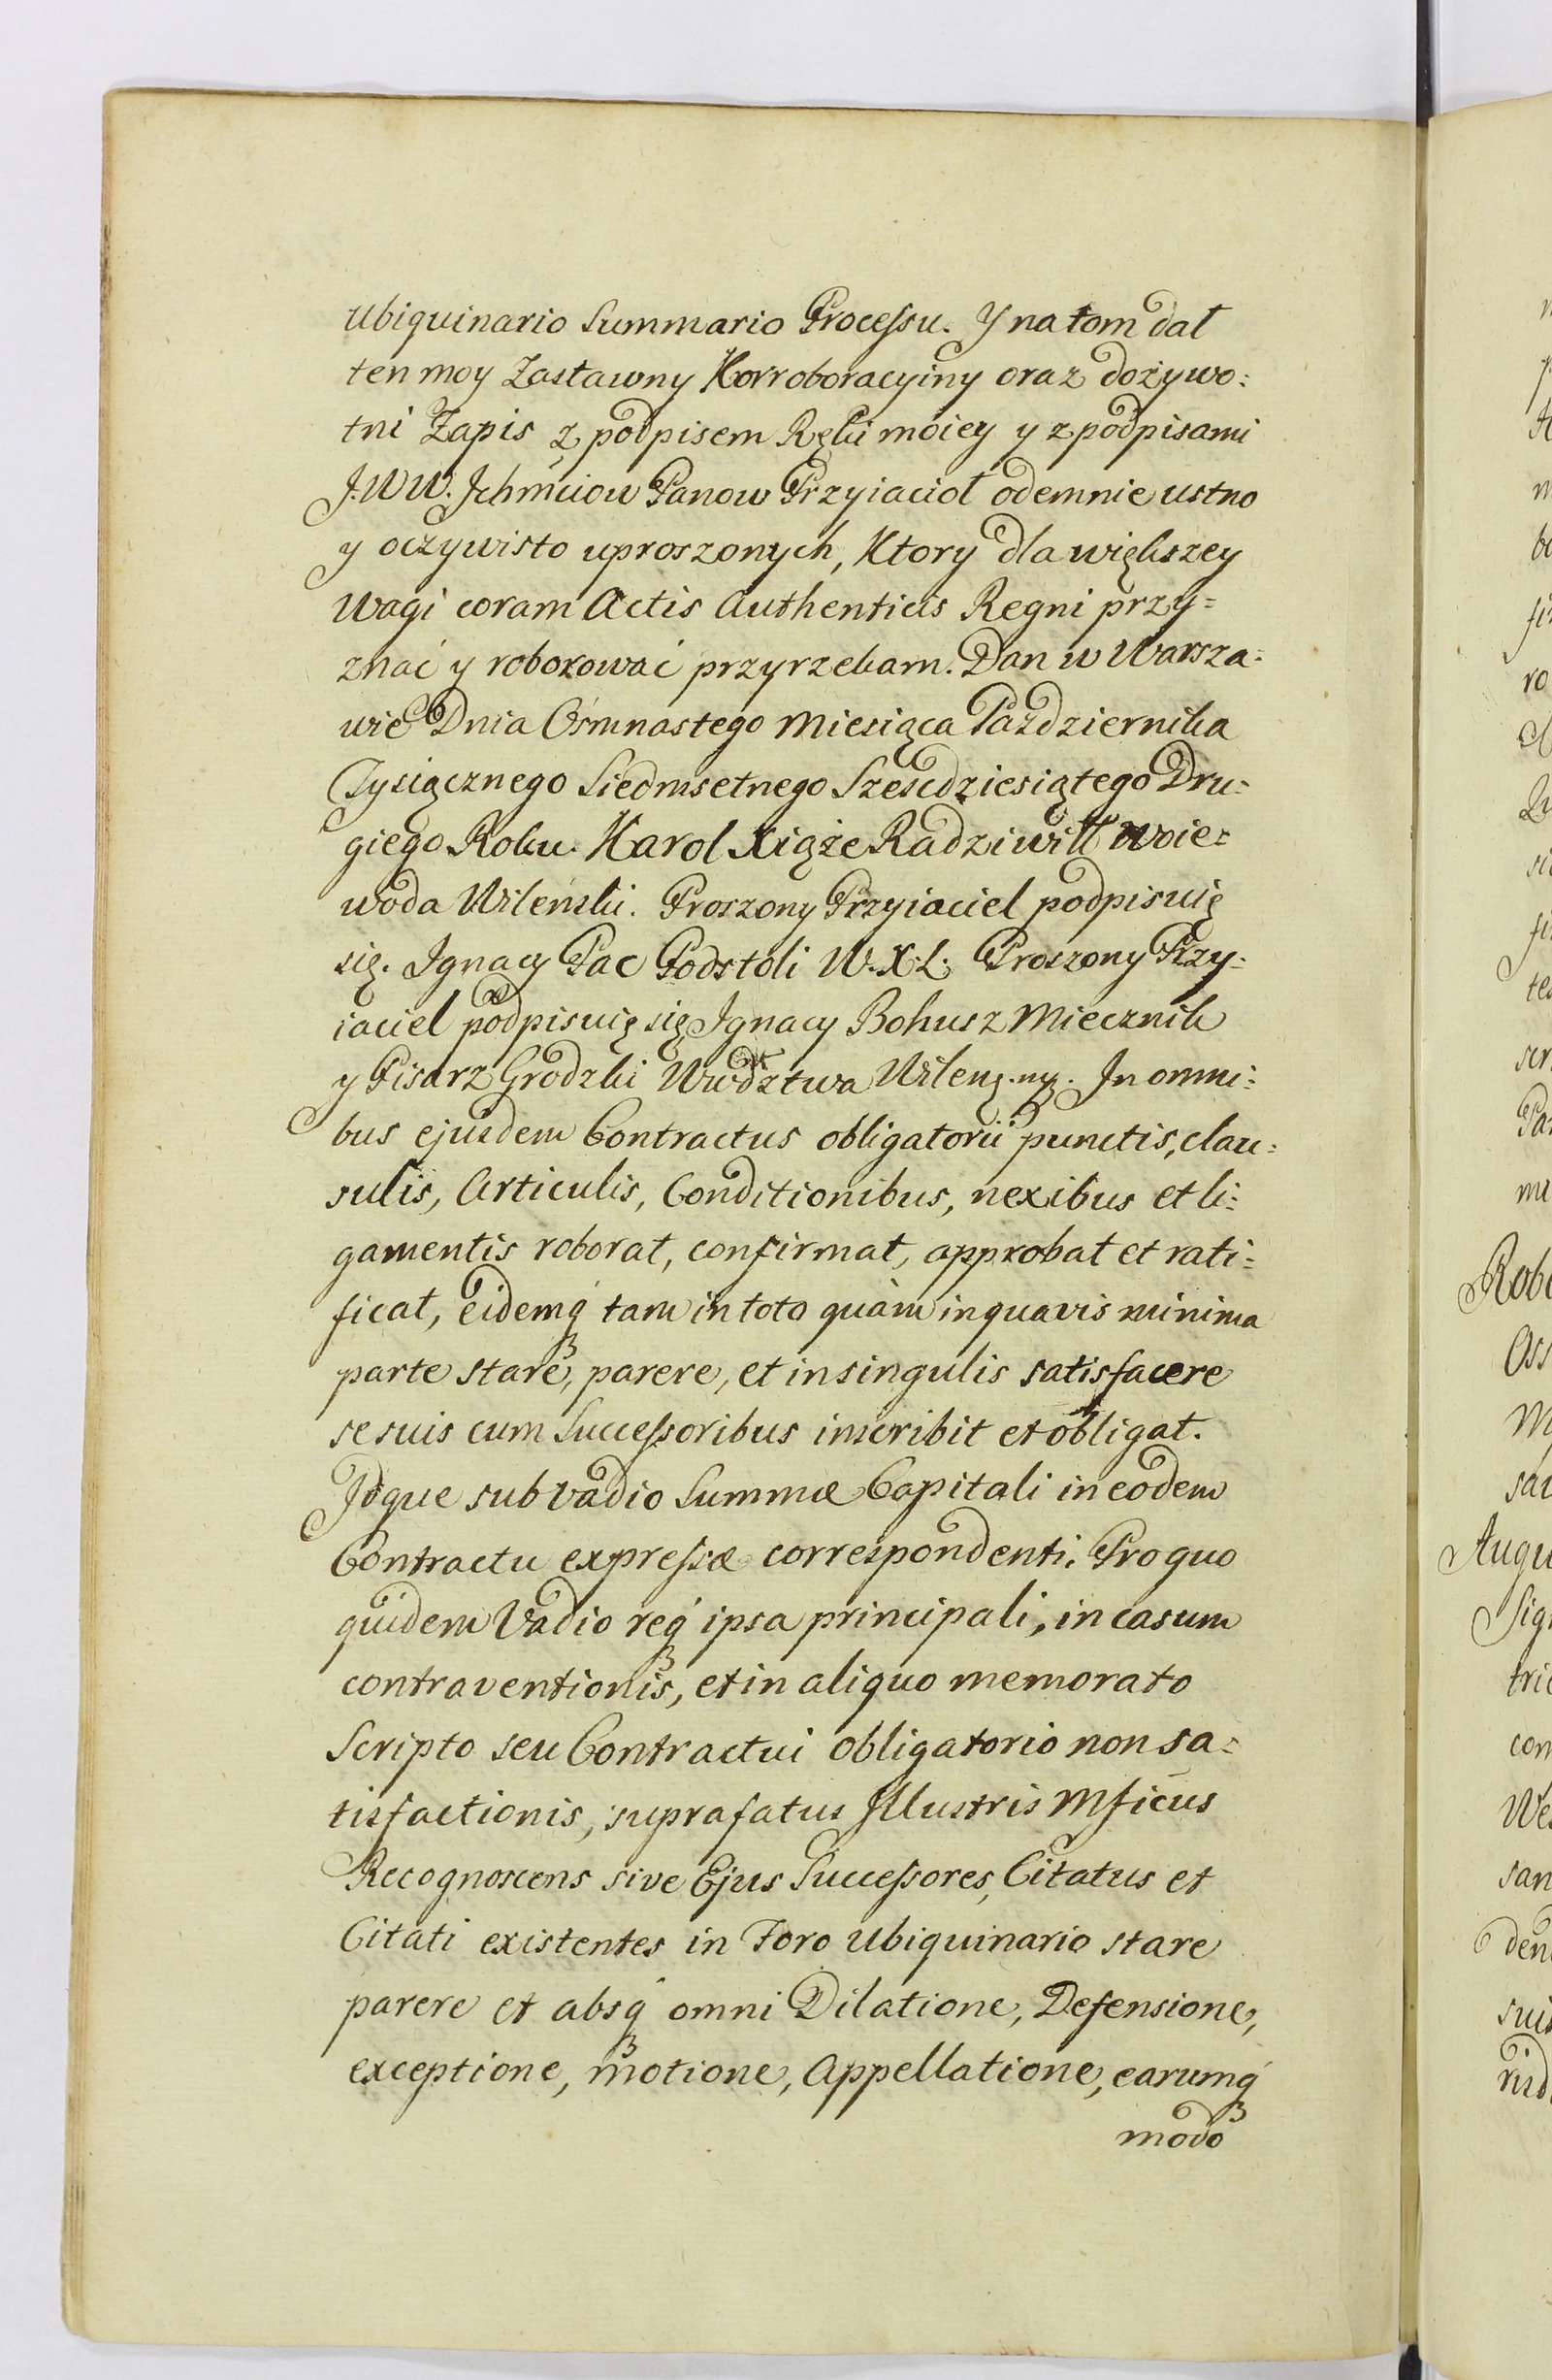 Ubiquinario Summario Processu. Y na tom dał
ten moy Zastawny Korroboracyiny oraz dożywo=
tni Zapis z podpisem Ręki moiey y z podpisami
J.WW. Ichmciow Panow Przyiacioł odemnie ustno
y oczywisto uproszonych, Ktory dla większey
Wagi coram Actis Authenticis Regni przy=
znać y roborować przyrzekam. Dan w Warsza=
wie Dnia Osmnastego Miesiąca Pazdziernika
Tysiącznego Siedmsetnego Szescdziesiątego Dru=
giego Roku. Karol Xiąże Radziwiłł Woie=
woda Wilenski. Proszony Przyiaciel podpisuię
się. Ignacy Pac Podstoli W.X.L. Proszony Przy=
iaciel podpisuię się Ignacy Bohusz Miecznik
y Pisarz Grodzki Wwdztwa Wileńg.ng. In omni=
bus ejusdem Contractus obligatorii punctis, clau=
sulis, Articulis, Conditionibus, nexibus et li=
gamentis roborat, confirmat, approbat et rati=
ficat, eidemq́ tam in toto quàm in quavis minima
parte stare, parere, et in singulis satisfacere
se suis cum Successoribus inscribit et obligat.
Idque sub vadio Summæ Capitali in eodem
Contractu expressæ correspondenti. Pro quo
quidem Vadio req́ ipsa principali, in casum
contraventionis, et in aliquo memorato
Scripto seu Contractui obligatorio non sa=
tisfactionis, suprafatus Illustris Mficus
Recognoscens sive Ejus Successores, Citatus et
Citati existentes in Foro Ubiquinario stare
parere et absq́ omni Dilatione, Defensione,
exceptione, motione, Appellatione, earumq́
modo